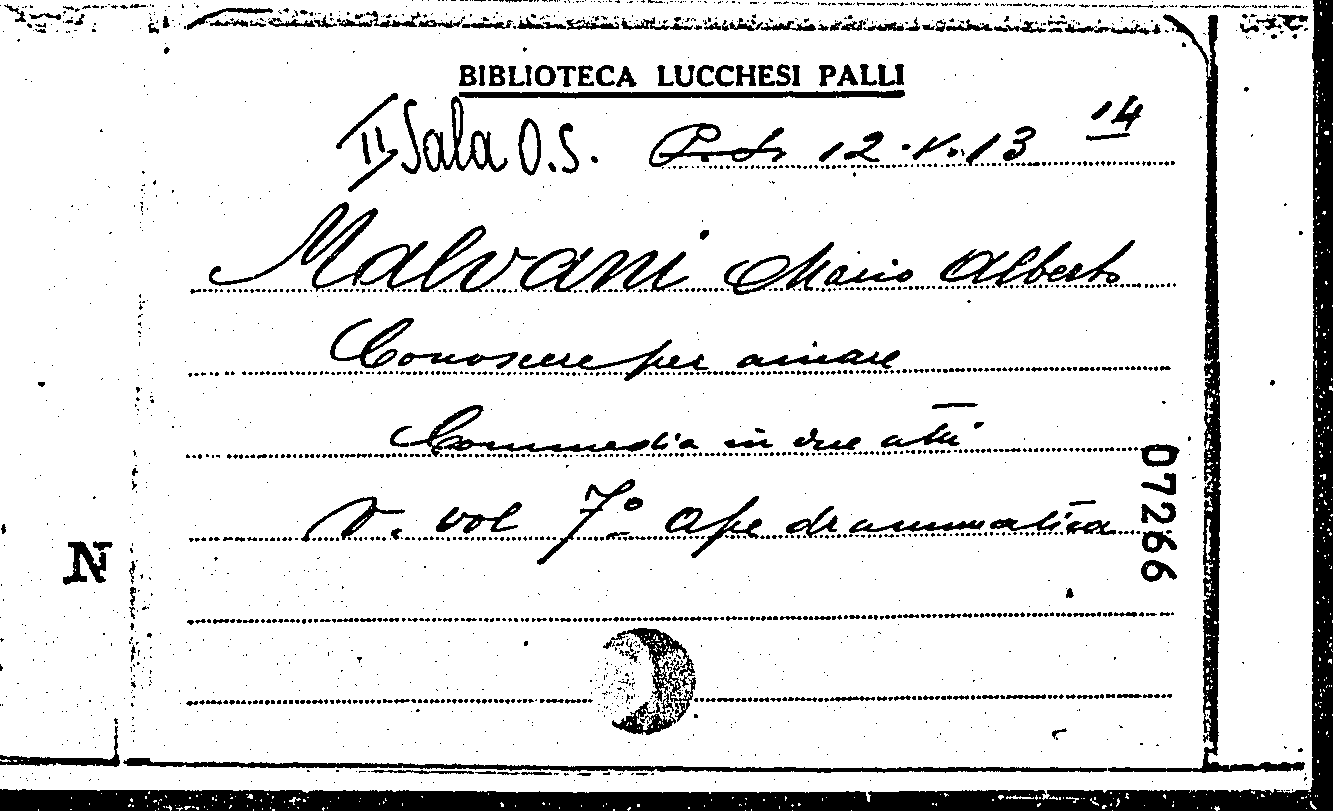 BIBLIOTECA LUCCHESI PALLI
II Sala O.S. 12.V.13 14
Malvani Mario Alberto
Conoscere per amare
Commedia in due atti
V. vol 7° Ape drammatica
07266
N